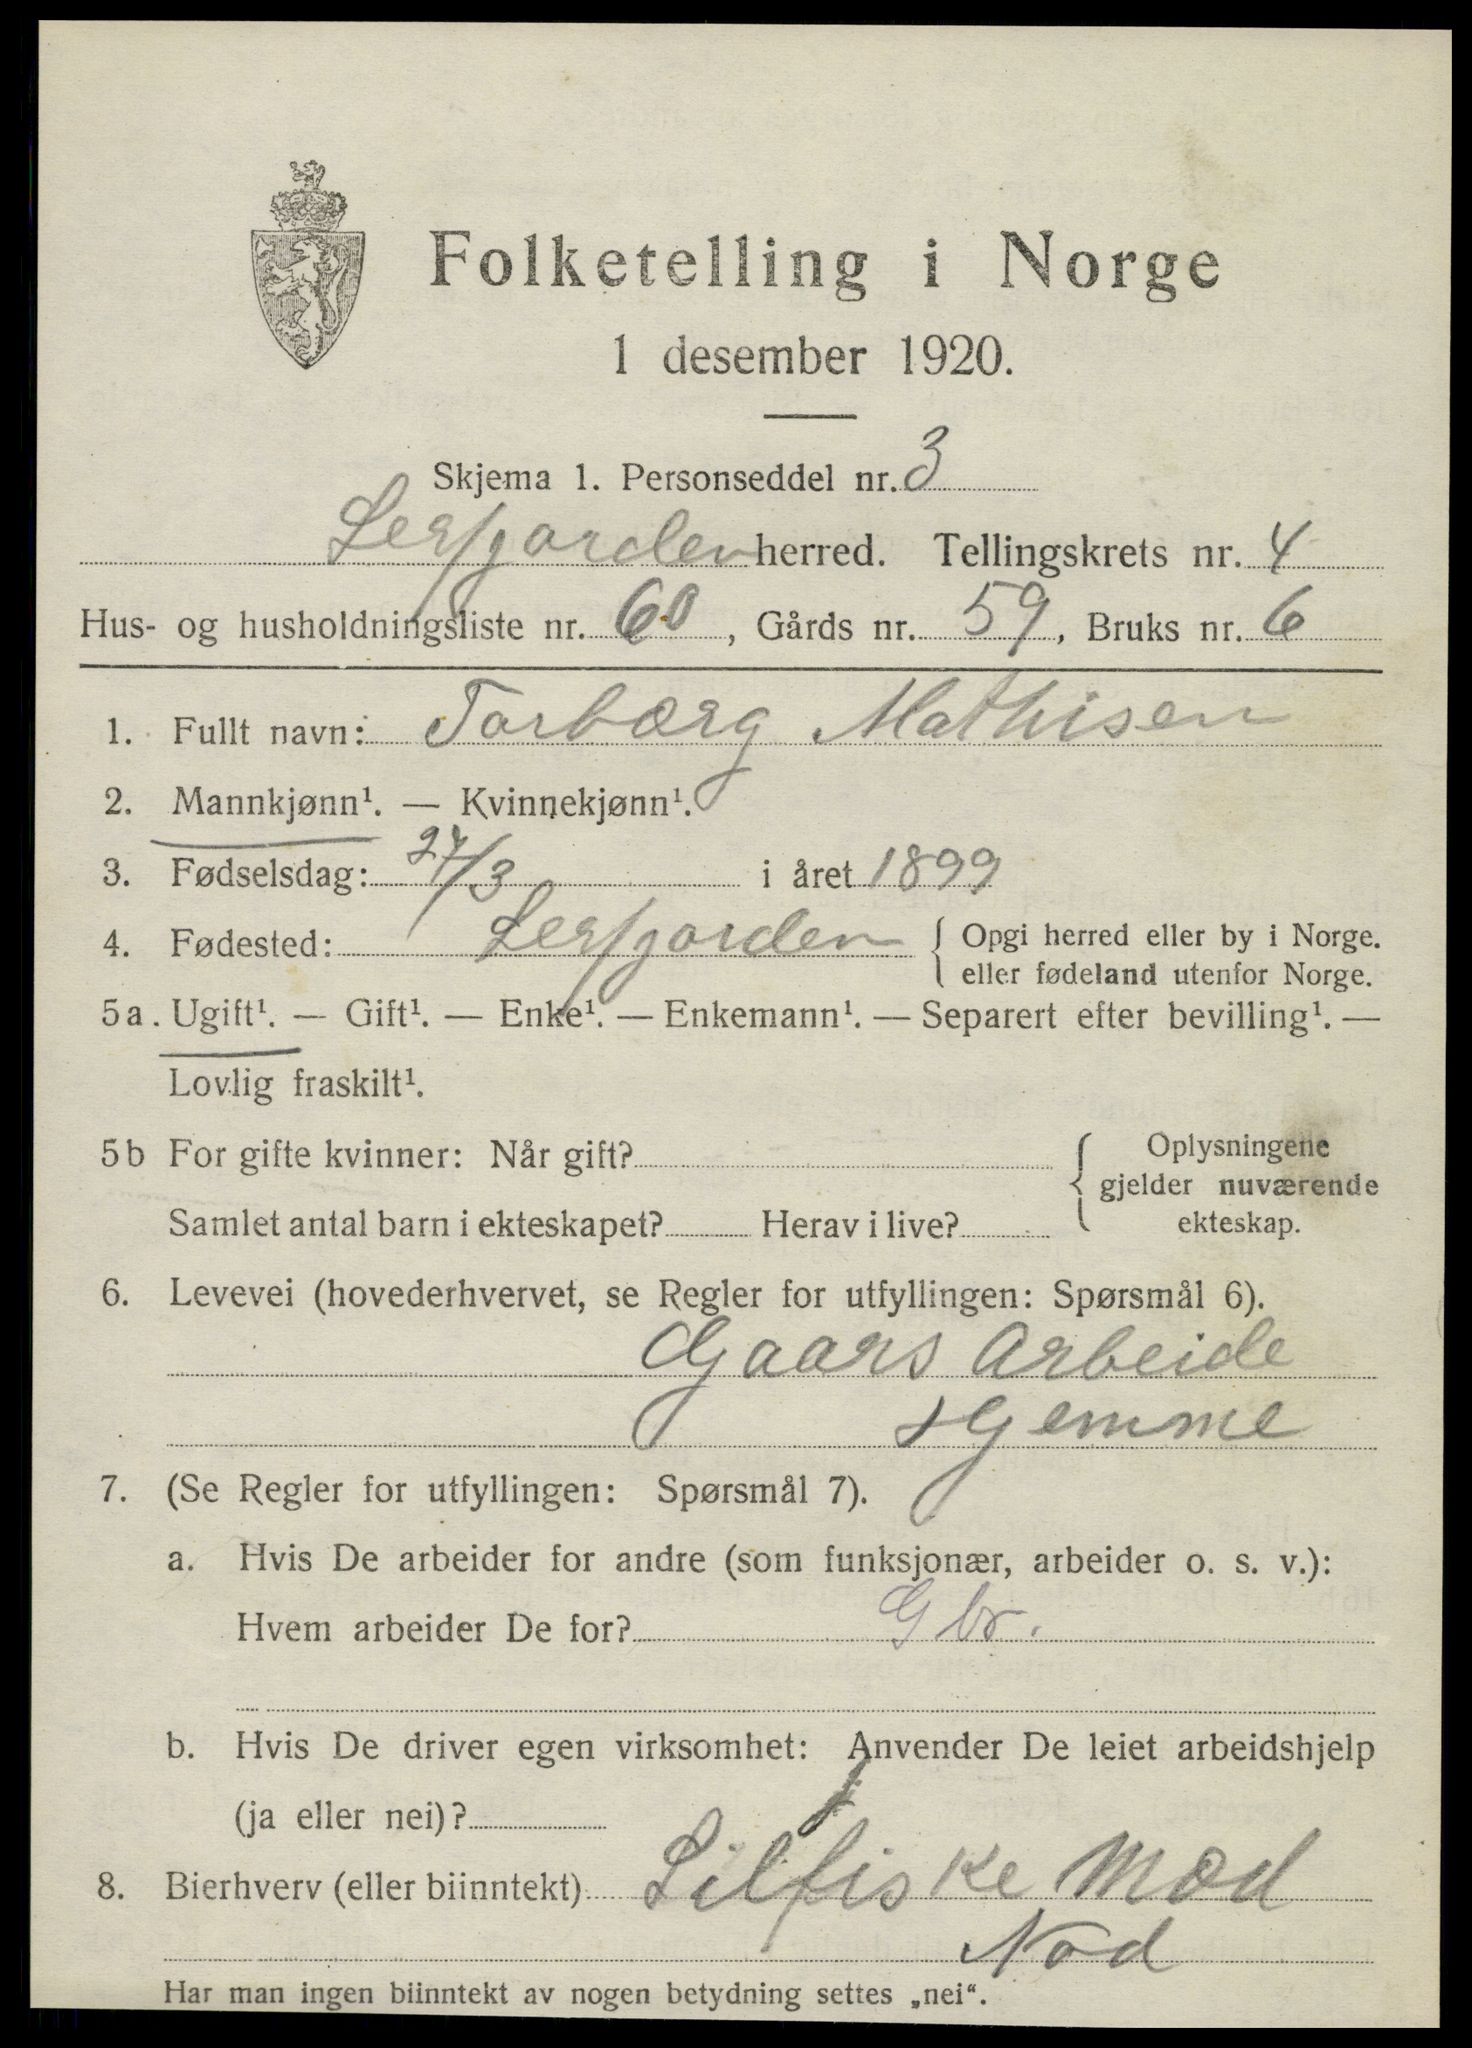 Folketelling i Norge
1 desember 1920.
Skjema 1. Personseddel nr. 3
Leirfjorden herred. Tellingskrets nr. 4
Hus- og husholdningsliste nr. 60, Gårds nr. 59, Bruks nr. 6
1. Fullt navn: Torbærg Mathisen
2. Mannkjønn¹. — Kvinnekjønn¹.
3. Fødselsdag: 27/3 i året 1899
4. Fødested: Leirfjorden { Opgi herred eller by i Norge.
eller fødeland utenfor Norge.
5a. Ugift¹. — Gift¹. — Enke¹. — Enkemann¹. — Separert efter bevilling¹. —
Lovlig fraskilt¹.
5b For gifte kvinner: Når gift? { Oplysningene
gjelder nuværende
Samlet antal barn i ekteskapet? Herav i live? ekteskap.
6. Levevei (hovederhvervet, se Regler for utfyllingen: Spørsmål 6).
Gaars Arbeide
Hjemme
7. (Se Regler for utfyllingen: Spørsmål 7).
a. Hvis De arbeider for andre (som funksjonær, arbeider o. s. v.):
Hvem arbeider De for? Gbr.
b. Hvis De driver egen virksomhet: Anvender De leiet arbeidshjelp
(ja eller nei)?
8. Bierhverv (eller biinntekt) Silfiske Mæd
Nod
Har man ingen biinntekt av nogen betydning settes „nei“.